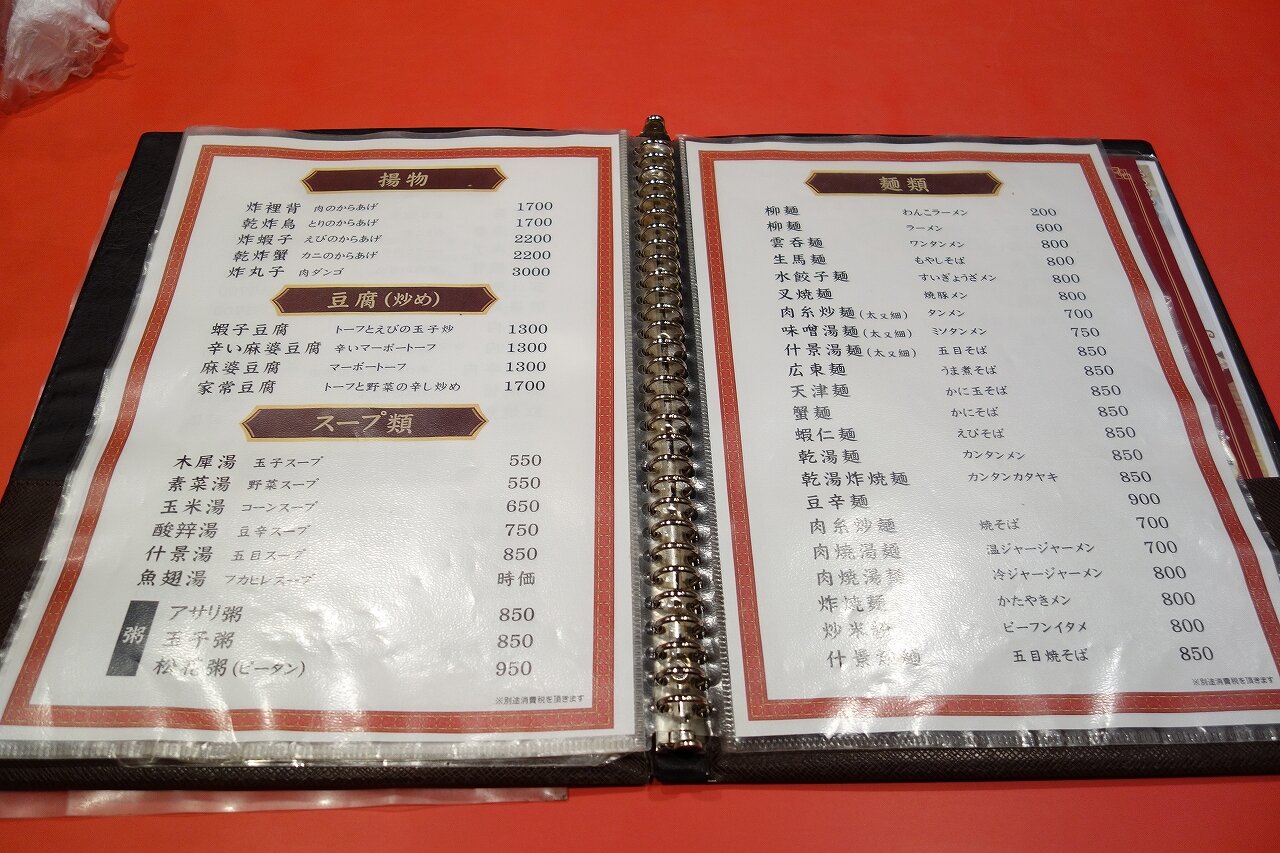 揚物
炸裡背 肉のからあげ 1700
乾炸鳥 とりのからあげ 1700
炸蝦子 えびのからあげ 2200
乾炸蟹 カニのからあげ 2200
炸丸子 肉ダンゴ 3000
豆腐(炒め)
蝦子豆腐 トーフとえびの玉子炒 1300
辛い麻婆豆腐 辛いマーボートーフ 1300
麻婆豆腐 マーボートーフ 1300
家常豆腐 トーフと野菜の辛し炒め 1700
スープ類
木犀湯 玉子スープ 550
素菜湯 野菜スープ 550
玉米湯 コーンスープ 650
酸辢湯 豆辛スープ 750
什景湯 五目スープ 850
魚翅湯 フカヒレスープ 時価
粥
アサリ粥 850
玉子粥 850
松花粥(ピータン) 950
※別途消費税を頂きます
麺類
柳麺 わんこラーメン 200
柳麺 ラーメン 600
雲呑麺 ワンタンメン 800
生馬麺 もやしそば 800
水餃子麺 すいぎょうざメン 800
叉焼麺 焼豚メン 800
肉糸炒麺(太又細) タンメン 700
味噌湯麺(太又細) ミソタンメン 750
什景湯麺(太又細) 五目そば 850
広東麺 うま煮そば 850
天津麺 かに玉そば 850
蟹麺 かにそば 850
蝦仁麺 えびそば 850
乾湯麺 カンタンメン 850
乾湯炸焼麺 カンタンカタヤキ 850
豆辛麺 900
肉糸炒麺 焼そば 700
肉焼湯麺 温ジャージャーメン 700
肉焼湯麺 冷ジャージャーメン 800
炸焼麺 かたやきメン 800
炒米粉 ビーフンイタメ 800
什景炒麺 五目焼そば 850
※別途消費税を頂きます